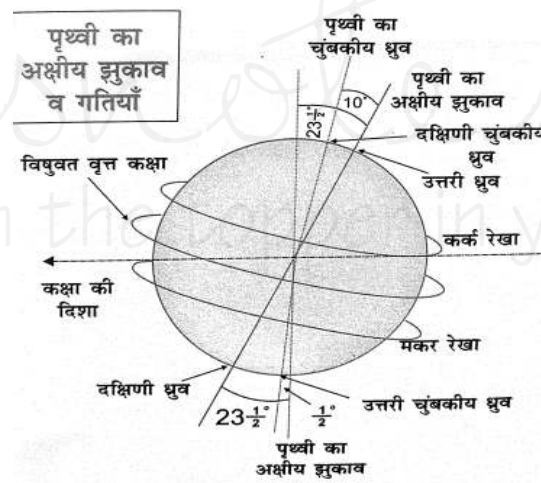 पृथ्वी का
अक्षीय झुकाव
व गतियाँ
पृथ्वी का
चुंबकीय ध्रुव
पृथ्वी का
अक्षीय झुकाव
10°
23½°
दक्षिणी चुंबकीय
ध्रुव
उत्तरी ध्रुव
विषुवत वृत्त कक्षा
कर्क रेखा
कक्षा की
दिशा
मकर रेखा
दक्षिणी ध्रुव
उत्तरी चुंबकीय ध्रुव
23½°
½°
पृथ्वी का
अक्षीय झुकाव